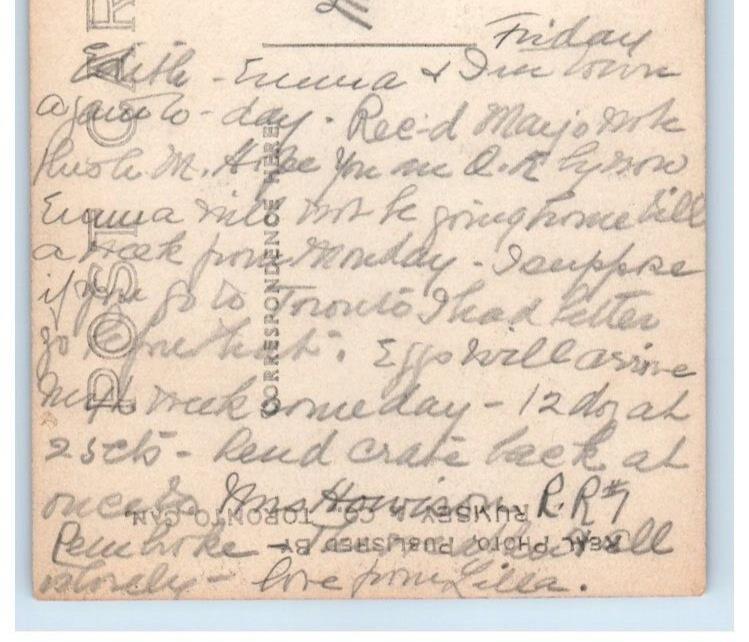 Friday
Edith - Emma & I in town
again to-day. Rec'd Marjo note
M. Hope you are O.K by now
Emma will not be going home till
a week from Monday - I suppose
if you go to Toronto I had better
go before that. Eggs will arrive
next week some day - 12 doz at
25cts - Send crate back at
once to Mrs Howison, R.R#7
Pembroke - all
slowly - love from Lilla.
POST CAR
CORRESPONDENCE HERE
REAL PHOTO. PUBLISHED BY
RUMSEY & CO. TORONTO CAN.